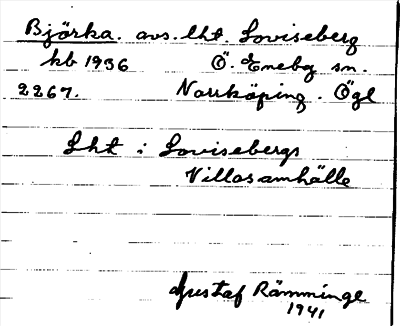 Björka. avs. lht. Loviseberg
kb 1936 Ö. Eneby sn.
2267. Norrköping. Ögl
Lht : Lovisebergs
Villasamhälle
Gustaf Rämminge
1941